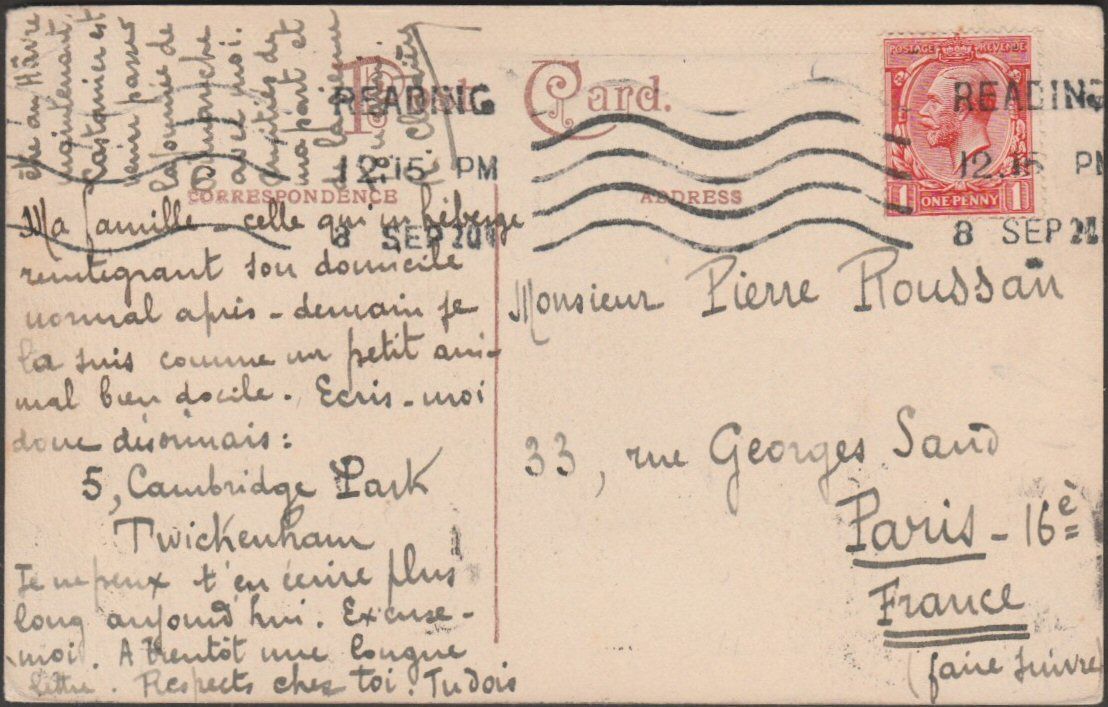 Post Card.
CORRESPONDENCE
ADDRESS
POSTAGE REVENUE
1 ONE PENNY 1
READING
12.15 PM
8 SEP
READING
12.15 PM
8 SEP
Ma famille - celle qui m'héberge
réintégrant son domicile
normal après-demain je
la suis comme un petit ani-
mal bien docile. Ecris-moi
donc désormais:
5, Cambridge Park
Twickenham
Je ne peux t'en écrire plus
long aujourd'hui. Excuse-
moi. A bientôt une longue
lettre. Respects chez toi. Tu dois
être au Hâvre
maintenant.
Castanier est
venu passer
la journée de
Dimanche
avec moi.
Amitiés de
sa part et
la mienne
Monsieur Pierre Roussan
33, rue Georges Sand
Paris - 16è
France
(faire suivre)